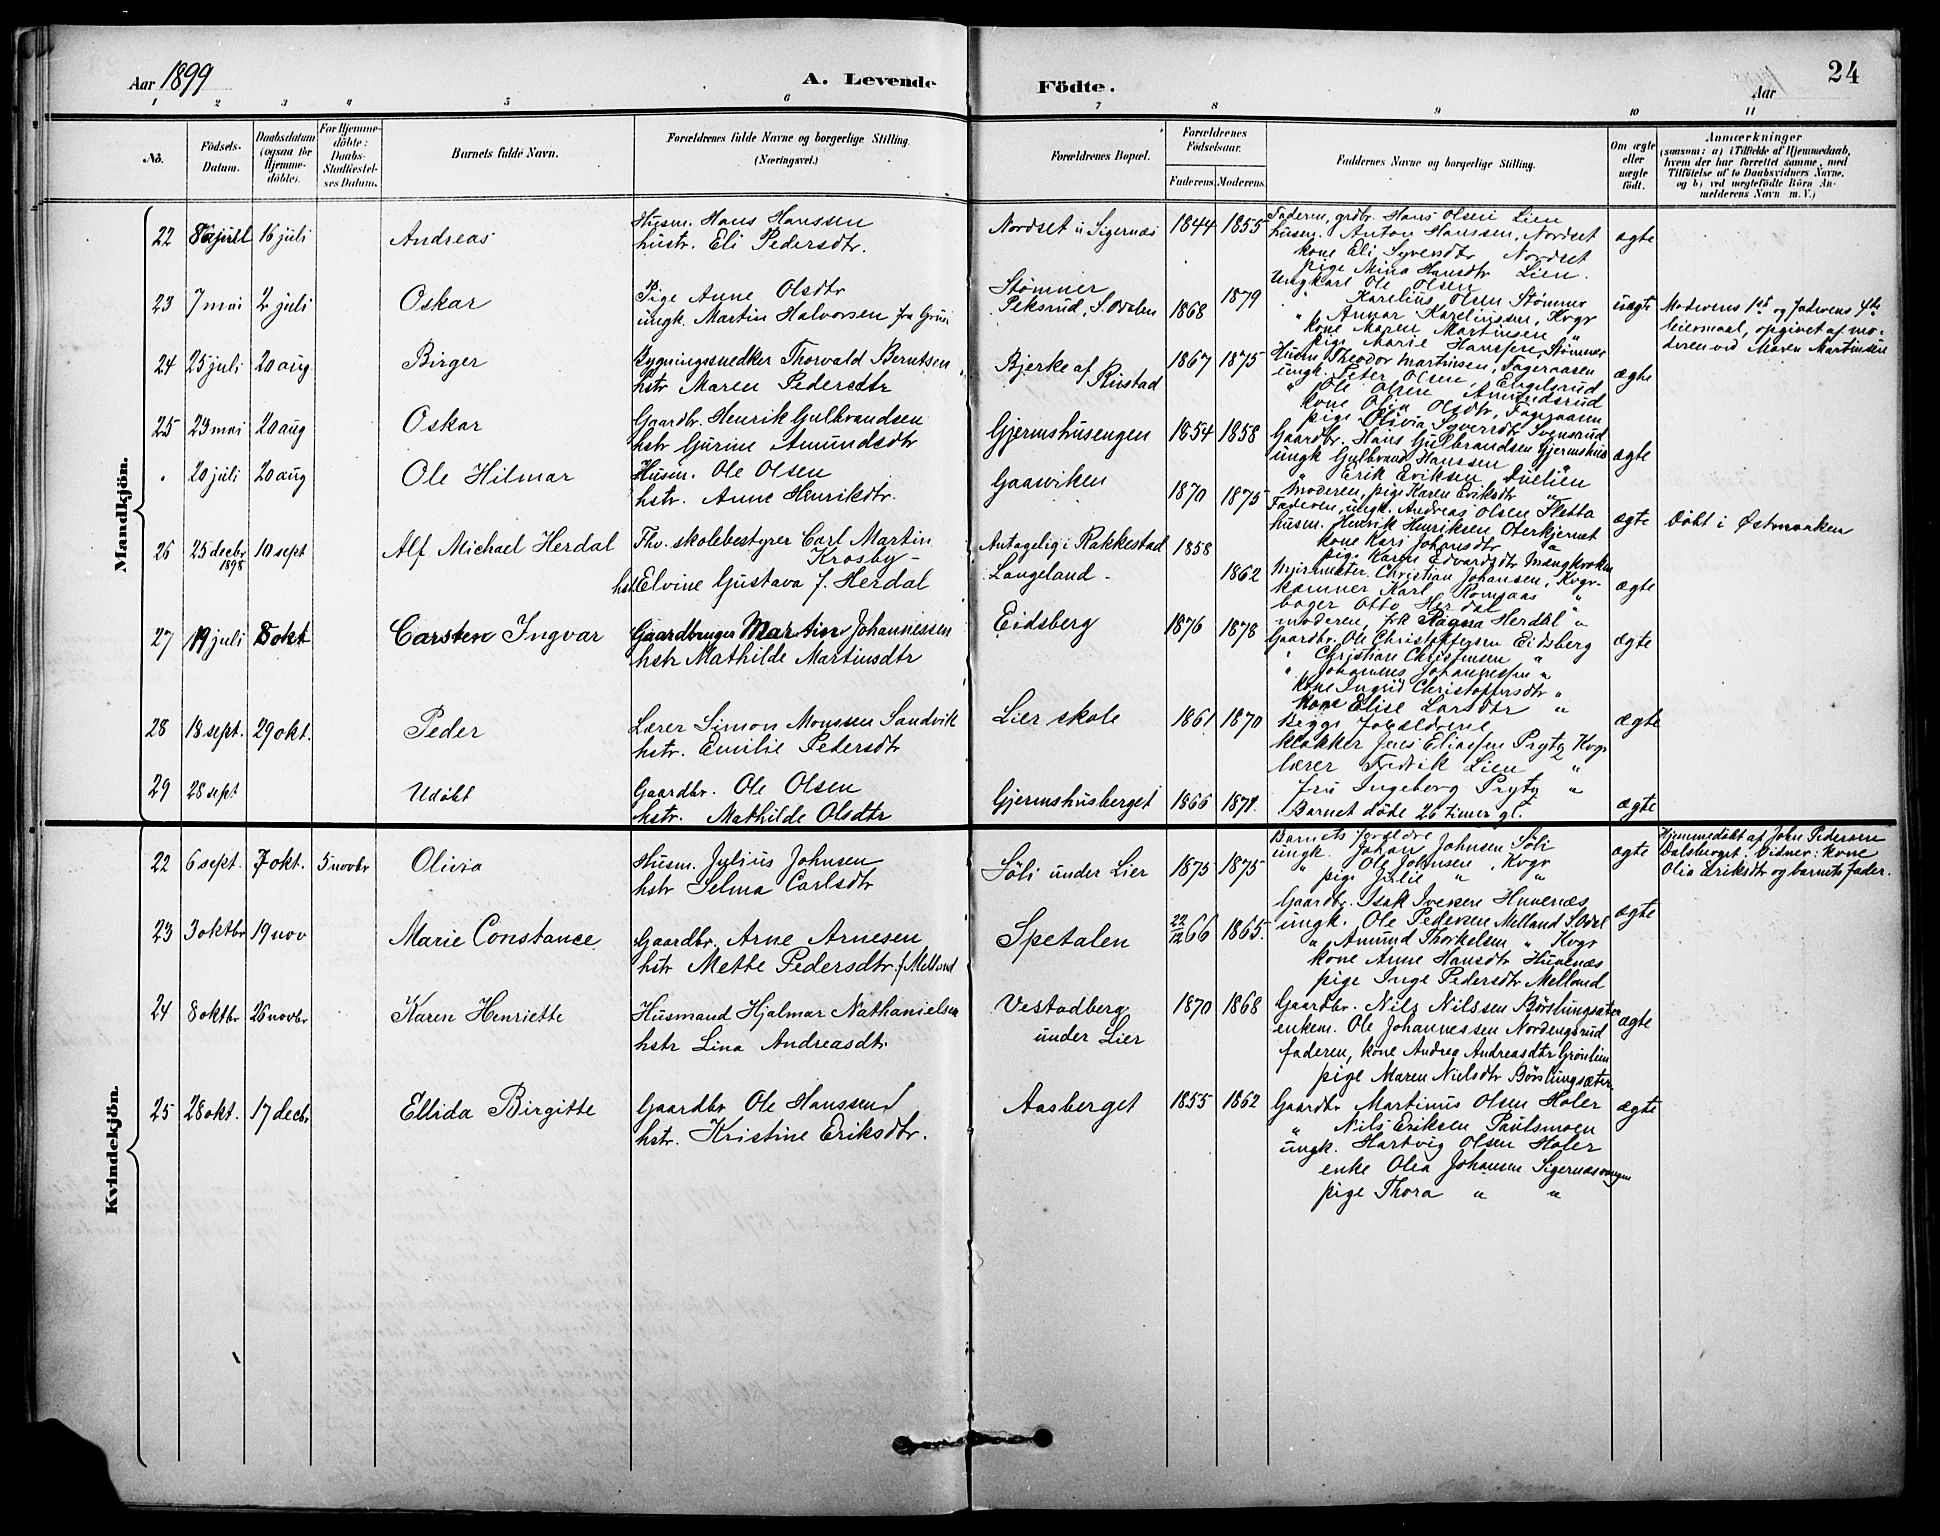 Aar 1899
A. Levende
Födte.
Aar
24
1 2 3 4 5 6 7 8 9 10 11
No.
Födsels-Datum.
Daabsdatum (ogsaa for Hjemme-döbte).
For Hjemme-döbte: Daabs-Stadfæstel-ses Datum.
Barnets fulde Navn.
Forældrenes fulde Navne og borgerlige Stilling. (Næringsvei.)
Forældrenes Bopæl.
Forældrenes Födselsaar.
Faderens. Moderens.
Faddernes Navne og borgerlige Stilling.
Om ægte eller uægte födt.
Anmærkninger
(saasom: a) i Tilfælde af Hjemmedaab, hvem der har forrettet samme, med Tilföielse af to Daabsvidners Navne, og b) ved uægtefödte Börn An-melderens Navn m. V.)
Mandkjön.
22 juli 16 juli Andreas
Husm. Hans Hanssen
hustr. Eli Pedersdtr.
Nordset u Sigernæs 1844 1855
Faderen, grdbr. Hans Olsen Lien
husm. Anton Hanssen, Nordset
kone Eli Syversdtr Nordset
pige Mina Hansdtr Lien.
ægte
23 7 mai 2 juli Oskar
Pige Anne Olsdtr
ungk. Martin Halvorsen fra Grue
Stømner
Peksrud, S. Odalen 1868 1879
Ungkarl Ole Olsen
" Karelius Olsen Stømner
" Annar Kareliussen, Kvgr
kone Maren Martinsen "
pige Marie Hanssen Stømner
uægte
Moderens 1ste og faderens 4de
leiermaal, opgivet af mo-
deren ved Maren Martinsen
24 25 juli 20 aug Birger
Bygningssnedker Thorvald Berntsen
hstr Maren Pedersdtr
Bjerke af Ristad 1867 1875
Husm Theodor Martinsen, Fageraasen
ungk. Peter Olsen, Engelsrud
" Ole Olsen Amundsrud
kone Olia Olsdtr, Fageraasen
pige Olivia Syversdtr Svensrud
ægte
25 23 mai 20 aug Oskar
Gaardbr. Henrik Gulbrandsen
hstr Gurine Amundsdtr
Gjermshusengen 1854 1858
Gaardbr. Hans Gulbrandsen Gjermshus
ungk Gulbrand Hanssen "
" Erik Eriksen Duelien
Moderen, pige Karen Eriksdtr "
ægte
" 20 juli 20 aug Ole Hilmar
Husm. Ole Olsen
hstr. Anne Henriksdtr.
Gaasviken 1870 1875
Faderen, ungk. Andreas Olsen Sletta
husm. Henrik Henriksen Oterkjernet
kone Kari Johansdtr "
pige Karen Edvardsdtr Mangkroken
ægte
Døbt i Østmarken
26 25 decbr 1898 10 sept Alf Michael Herdal
Fhv. skolebestyrer Carl Martin
Krosby -
hst Elvine Gustava f. Herdal
Antagelig i Rakkestad 1858
Langeland - 1862
Christian Johansen, Kvgr.
Karl Romsaas "
bager Otto Herdal "
moderen, frk Ragna Herdal "
ægte
27 19 juli 8 okt Carsten Ingvar
Gaardbruger Martin Johannessen
hstr Mathilde Martinsdtr
Eidsberg 1876 1878
Gaardbr. Ole Christoffersen Eidsberg
" Christian Christensen "
" Johannes Johannessen "
kone Ingrid Christoffersdtr "
kone Elise Larsdtr "
ægte
28 18 sept. 29 okt. Peder
Lærer Simon Monssen Sandvik
hstr. Emilie Pedersdtr
Lier skole 1861 1870
Begge forældrene
klokker Jens Eliassen Prytz Kvgr
lærer Fredrik Lien "
fru Ingeborg Prytz "
ægte
29 28 sept Udøbt
Gaardbr. Ole Olsen
hstr. Mathilde Olsdtr
Gjermshusberget 1866 1871.
Barnet døde 26 timer gl.
ægte
Kvindekjön.
22 6 sept. 7 okt. 5 novbr Olivia
Husm. Julius Johnsen
hstr Selma Carlsdtr
Söli under Lier 1875 1875
Barnets forældre
ungk. Johan Johnsen Söli
" Ole Johnsen, Kvgr
pige Julie " "
ægte
Hjemmedøbt af John Pedersen
Dalsberget. Vidner: kone
Olia Eriksdtr og barnets fader.
23 3 oktbr 19 nov Marie Constance
Gaardbr. Arne Arnesen
hstr Mette Pedersdtr f. Melland
Spetalen 22/12 66 1865.
Gaardbr. Isak Iversen Huvenæs
ungk. Ole Pedersen Melland S. Odal
" Amund Thorkelsen " Kvgr
kone Anne Hansdtr Huvenæs
pige Inge Pedersdtr Melland
ægte
24 8 oktbr 26 novbr Karen Henriette
Husmand Hjalmar Nathanielsen
hstr Lina Andreasdtr.
Vestadberg
under Lier 1870 1868
Gaardbr. Nils Nilssen Börslungsæter
enkem. Ole Johannessen Nordengsrud
faderen, kone Andrea Andreasdtr Grönlien
pige Maren Nielsdtr Börslungsæter
ægte
25 28 okt. 17 decbr Ellida Birgitte
Gaardbr Ole Hanssen
hstr. Kristine Eriksdtr.
Aasberget 1855 1862
Gaardbr Martinus Olsen Holer
" Nils Eriksen Paulsmoen
ungk. Hartvig Olsen Holer
enke Olea Johansen Sigernæsvangen
pige Thora " "
ægte